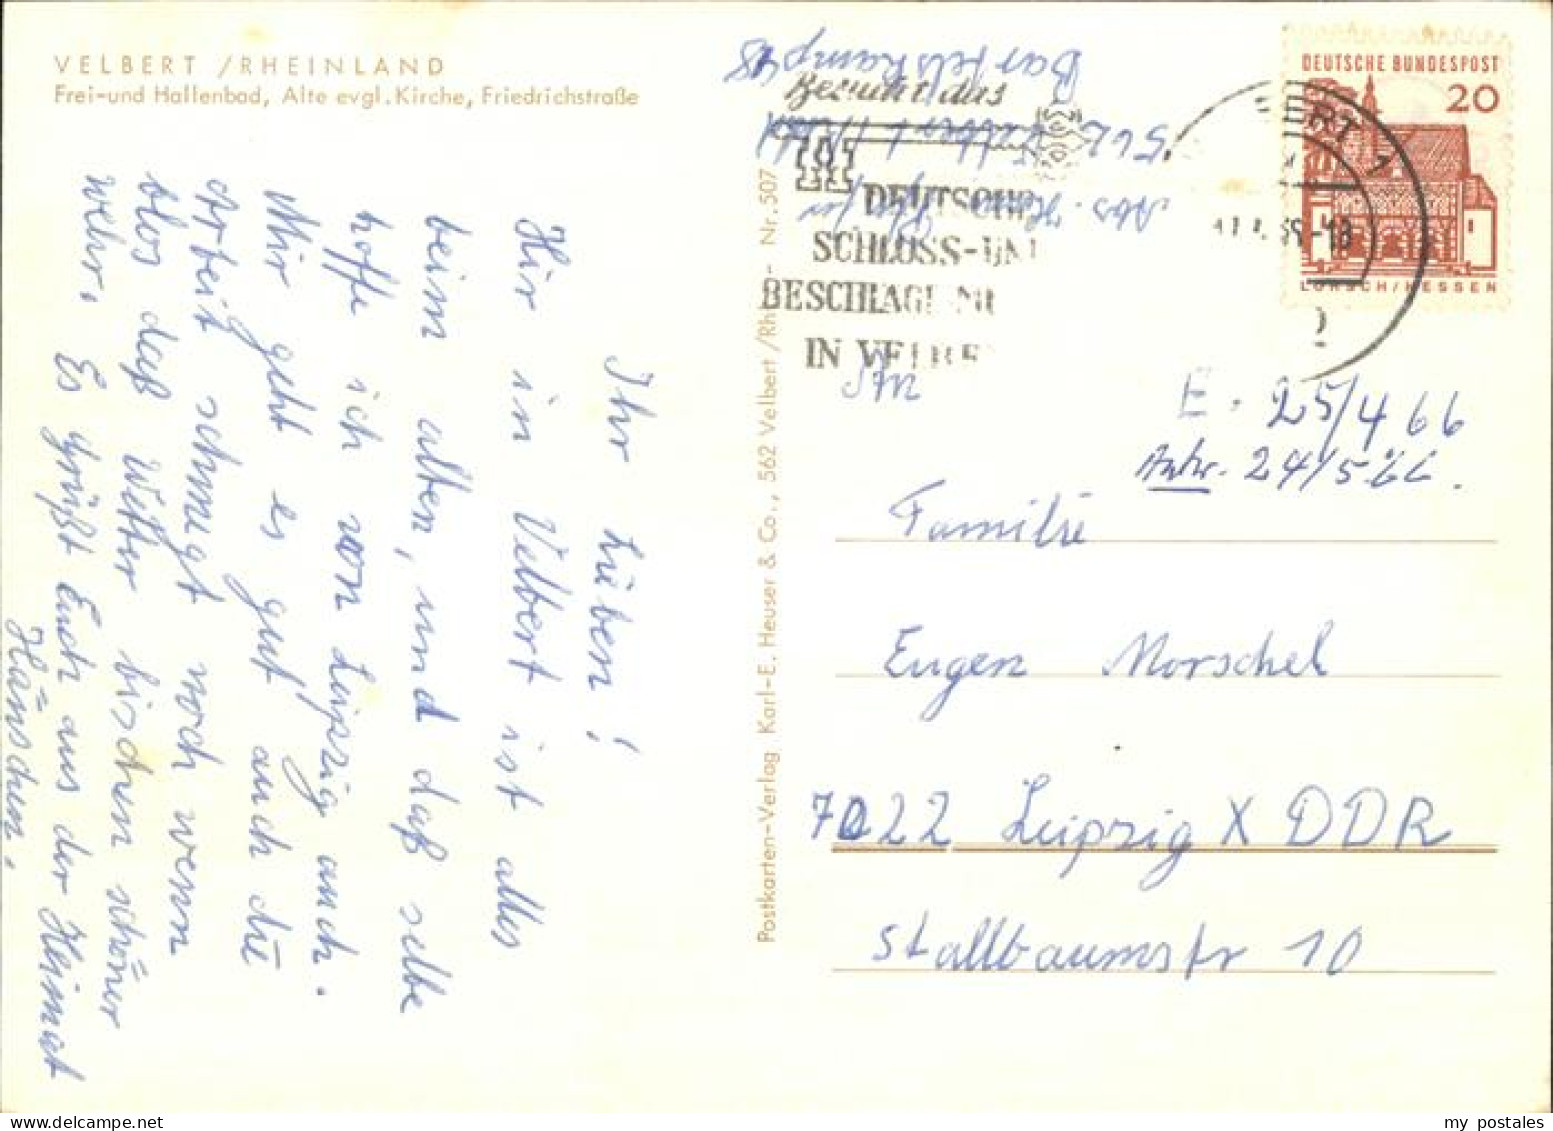 VELBERT /RHEINLAND
Frei-und Hallenbad, Alte evgl. Kirche, Friedrichstraße
Ihr Lüben!
Hir in Velbert ist alles
beim alten, und daß selbe
hoffe ich von Leipzig auch.
Mir geht es gut auch die
Arbeit schmegt noch wenn
blos daß Wetter bischen schöner
wehr. Es grüßt Euch aus der Heimat
Hänschen.
Postkarten-Verlag Karl-E. Heuser & Co., 562 Velbert/Rhl. - Nr. 507
Abs. H.
562 Velbert 1/Rhld
Bartelskamp 48
Besucht das
DEUTSCHE
SCHLOSS-UN
BESCHLAGE-MU
IN VELBE
BERT 1
-18
DEUTSCHE BUNDESPOST
20
LORSCH/HESSEN
An
E. 25/4 66
Antw. 24/5.66.
Familie
Eugen Morschel
7022 Leipzig X DDR
Stallbaumstr 10
my postales